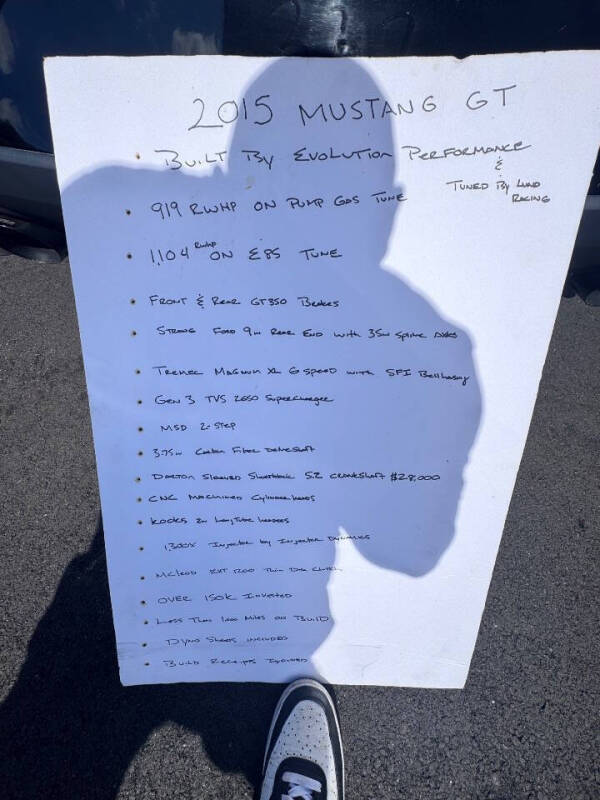 2015 MUSTANG GT
• BUILT BY EVOLUTION PERFORMANCE
&
TUNED BY LUND
RACING
• 919 RWHP ON PUMP GAS TUNE
• 1,104 RWHP ON E85 TUNE
• FRONT & REAR GT350 Brakes
• STRANG FORD 9in REAR END WITH 35in Spline Axles
• TREMEC MAGNUM XL 6 SPEED WITH SFI Bellhousing
• GEN 3 TVS 2650 Supercharger
• MSD 2-STEP
• 3.75in CARBON FIBER DRIVESHAFT
• DARTON SLEEVED Shortblock 5.2 CRANKSHAFT $28,000
• CNC MACHINED CYLINDER HEADS
• KOOKS 2in LongTube headers
• 1300X Injector by Injector DYNAMICS
• MCLEOD RXT 1200 Twin Disk Clutch
• OVER 150K INVESTED
• LESS THAN 1000 MILES ON BUILD
• DYNO SHEETS INCLUDED
• BUILD RECEIPTS INCLUDED